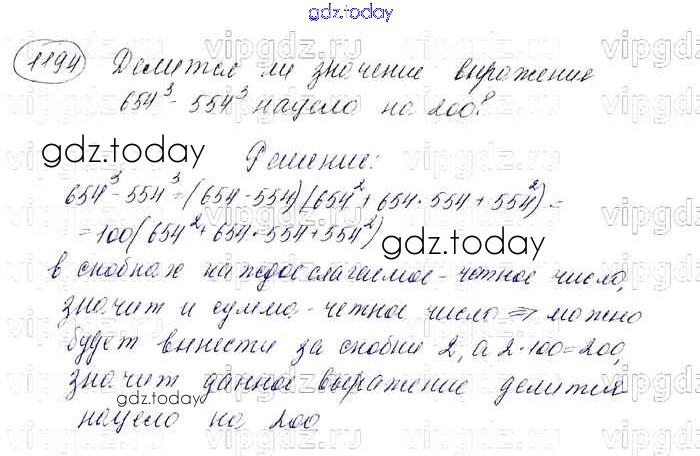 gdz.today
1194 Делится ли значение выражения
654³ - 554³ нацело на 200?
gdz.today
Решение:
654³ - 554³ = (654 - 554)(654² + 654·554 + 554²) =
= 100(654² + 654·554 + 554²)
gdz.today
в скобках каждое слагаемое - четное число,
значит и сумма - четное число ⇒ можно
будет вынести за скобки 2, а 2·100=200,
значит данное выражение делится
gdz.today
нацело на 200
vipgdz.ru